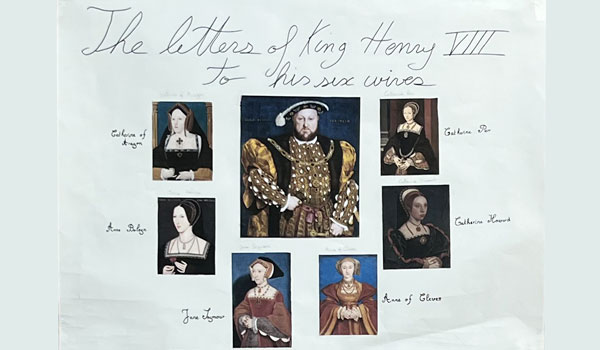 The letters of King Henry VIII
to his six wives
Catherine of
Aragon
Catherine Par
Anne Boleyn
Catherine Howard
Jane Seymour
Anne of Cleves